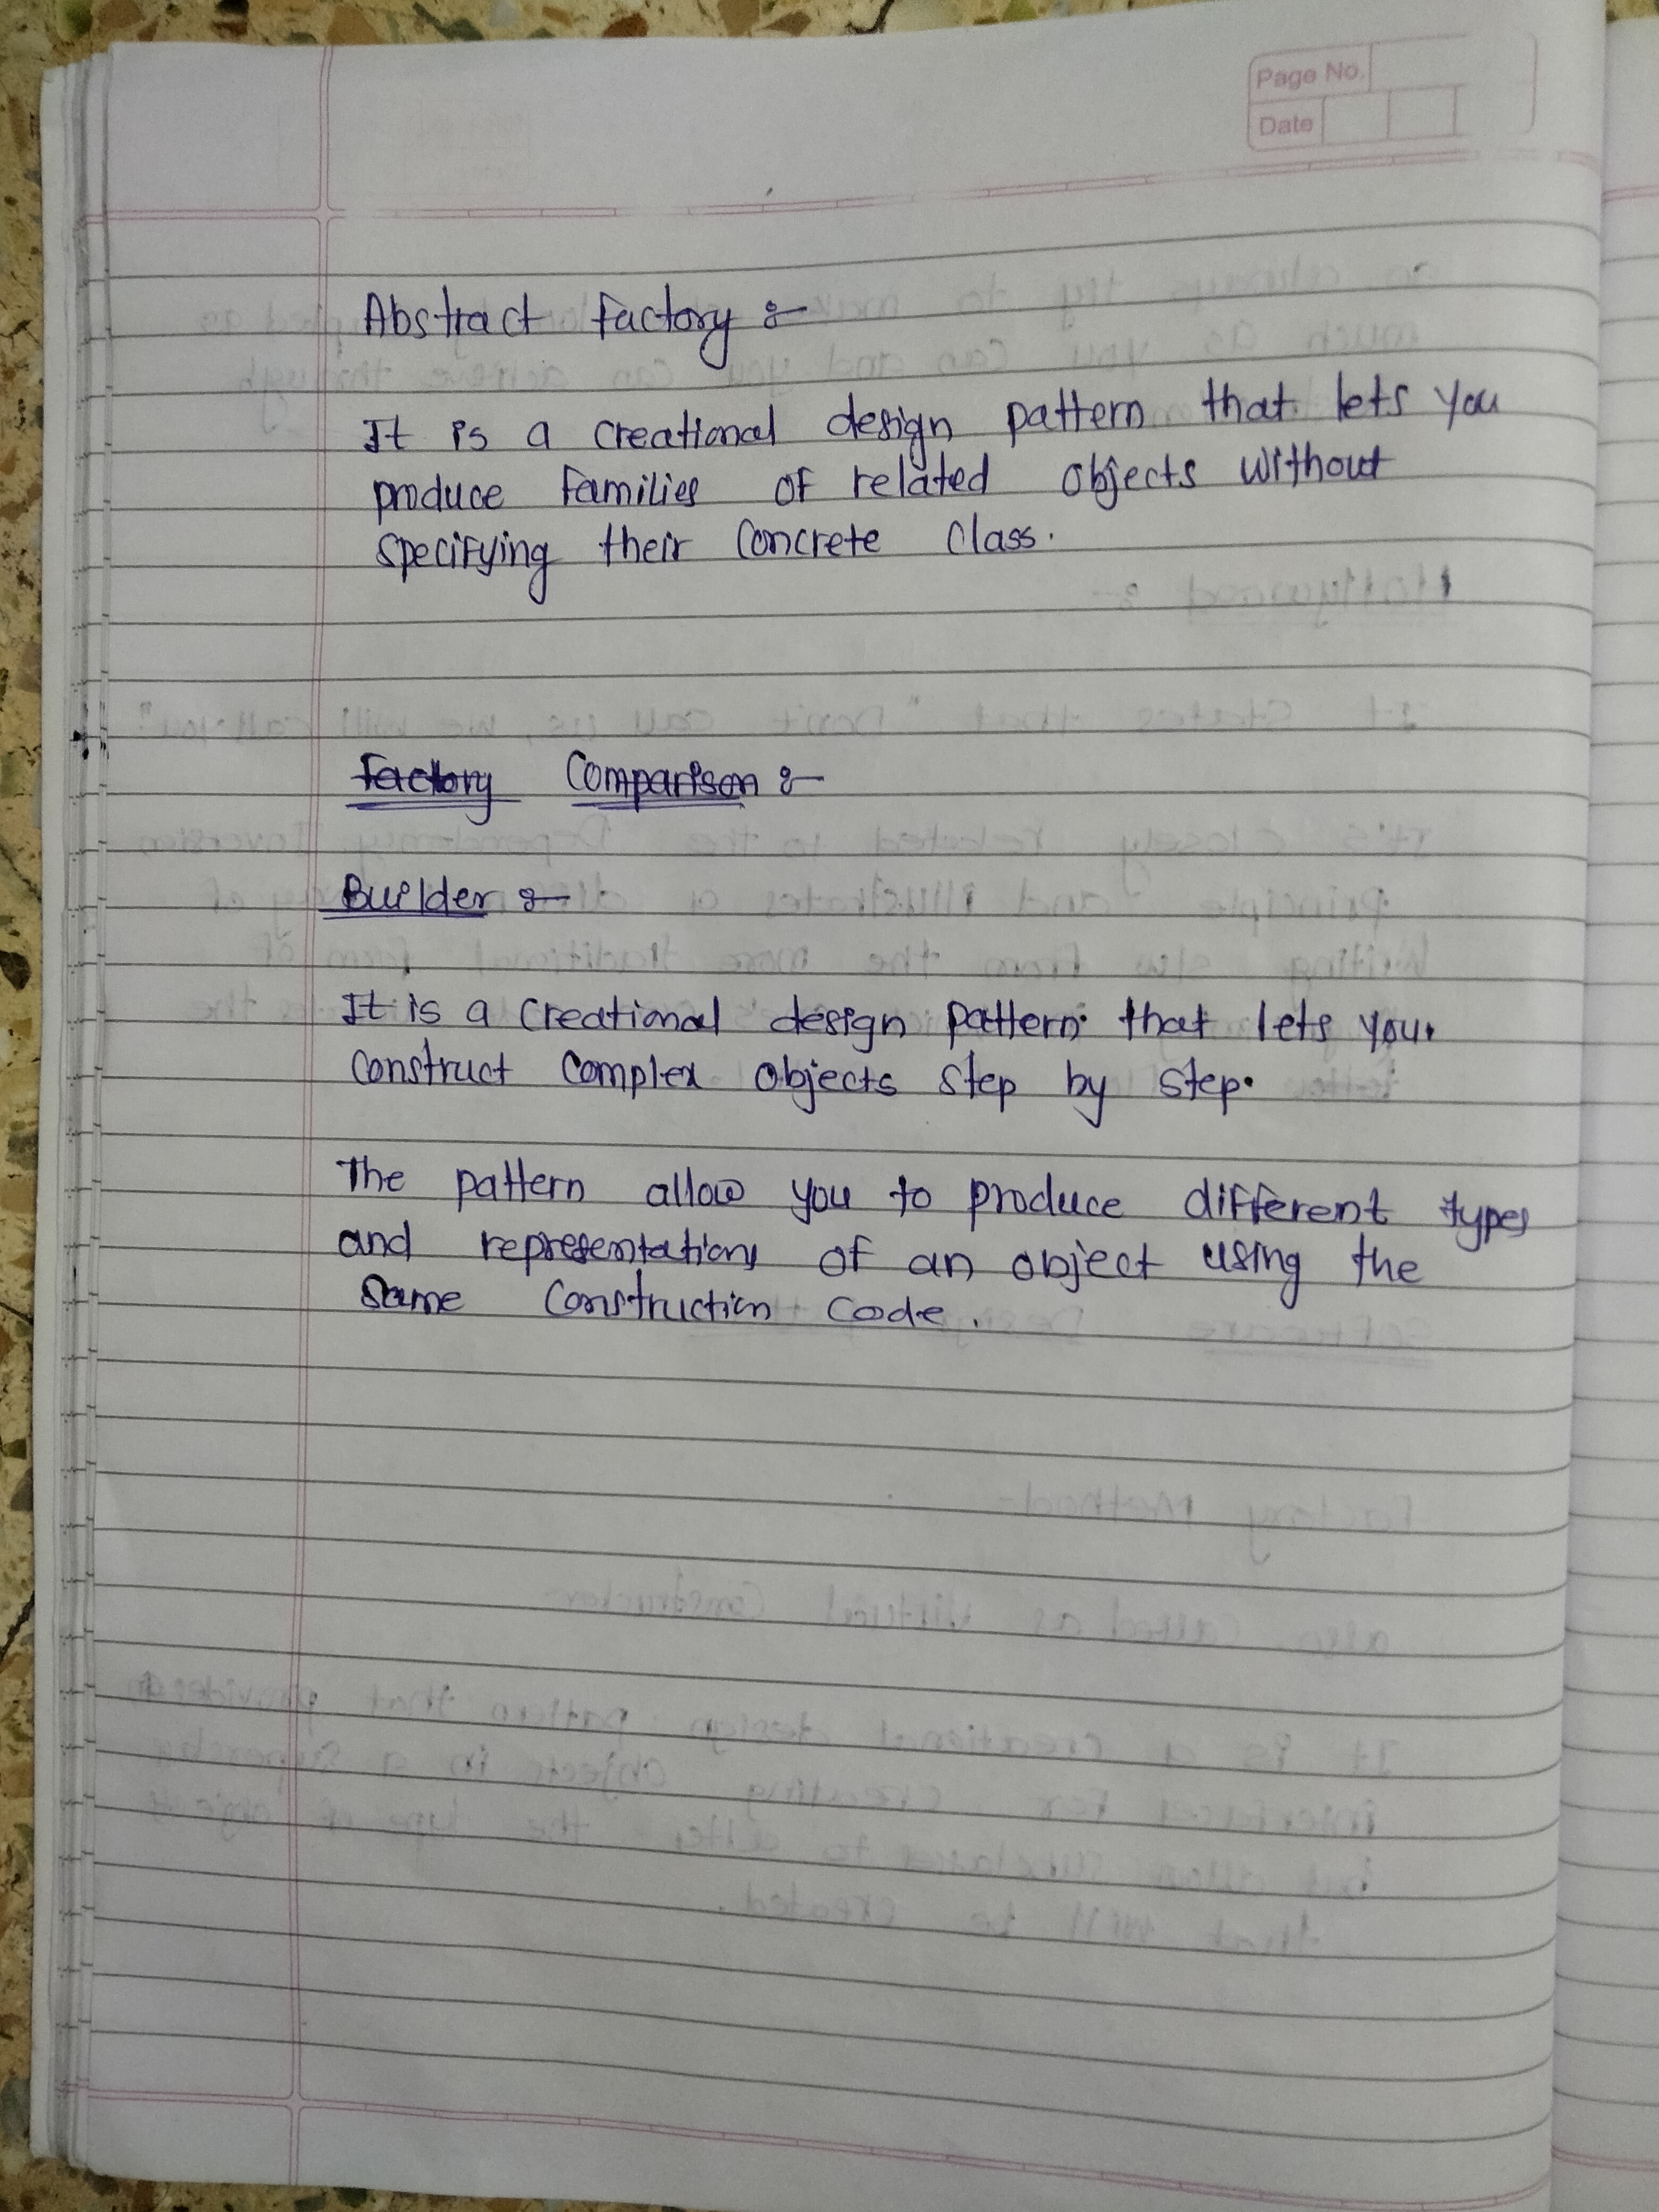 Page No.
Date
Abstract factory :-
It is a creational design pattern that lets you
produce families of related objects without
specifying their concrete class.
Factory Comparison :-
Builder :-
It is a creational design pattern that lets you
construct complex objects step by step.
The pattern allow you to produce different types
and representations of an object using the
same construction code.